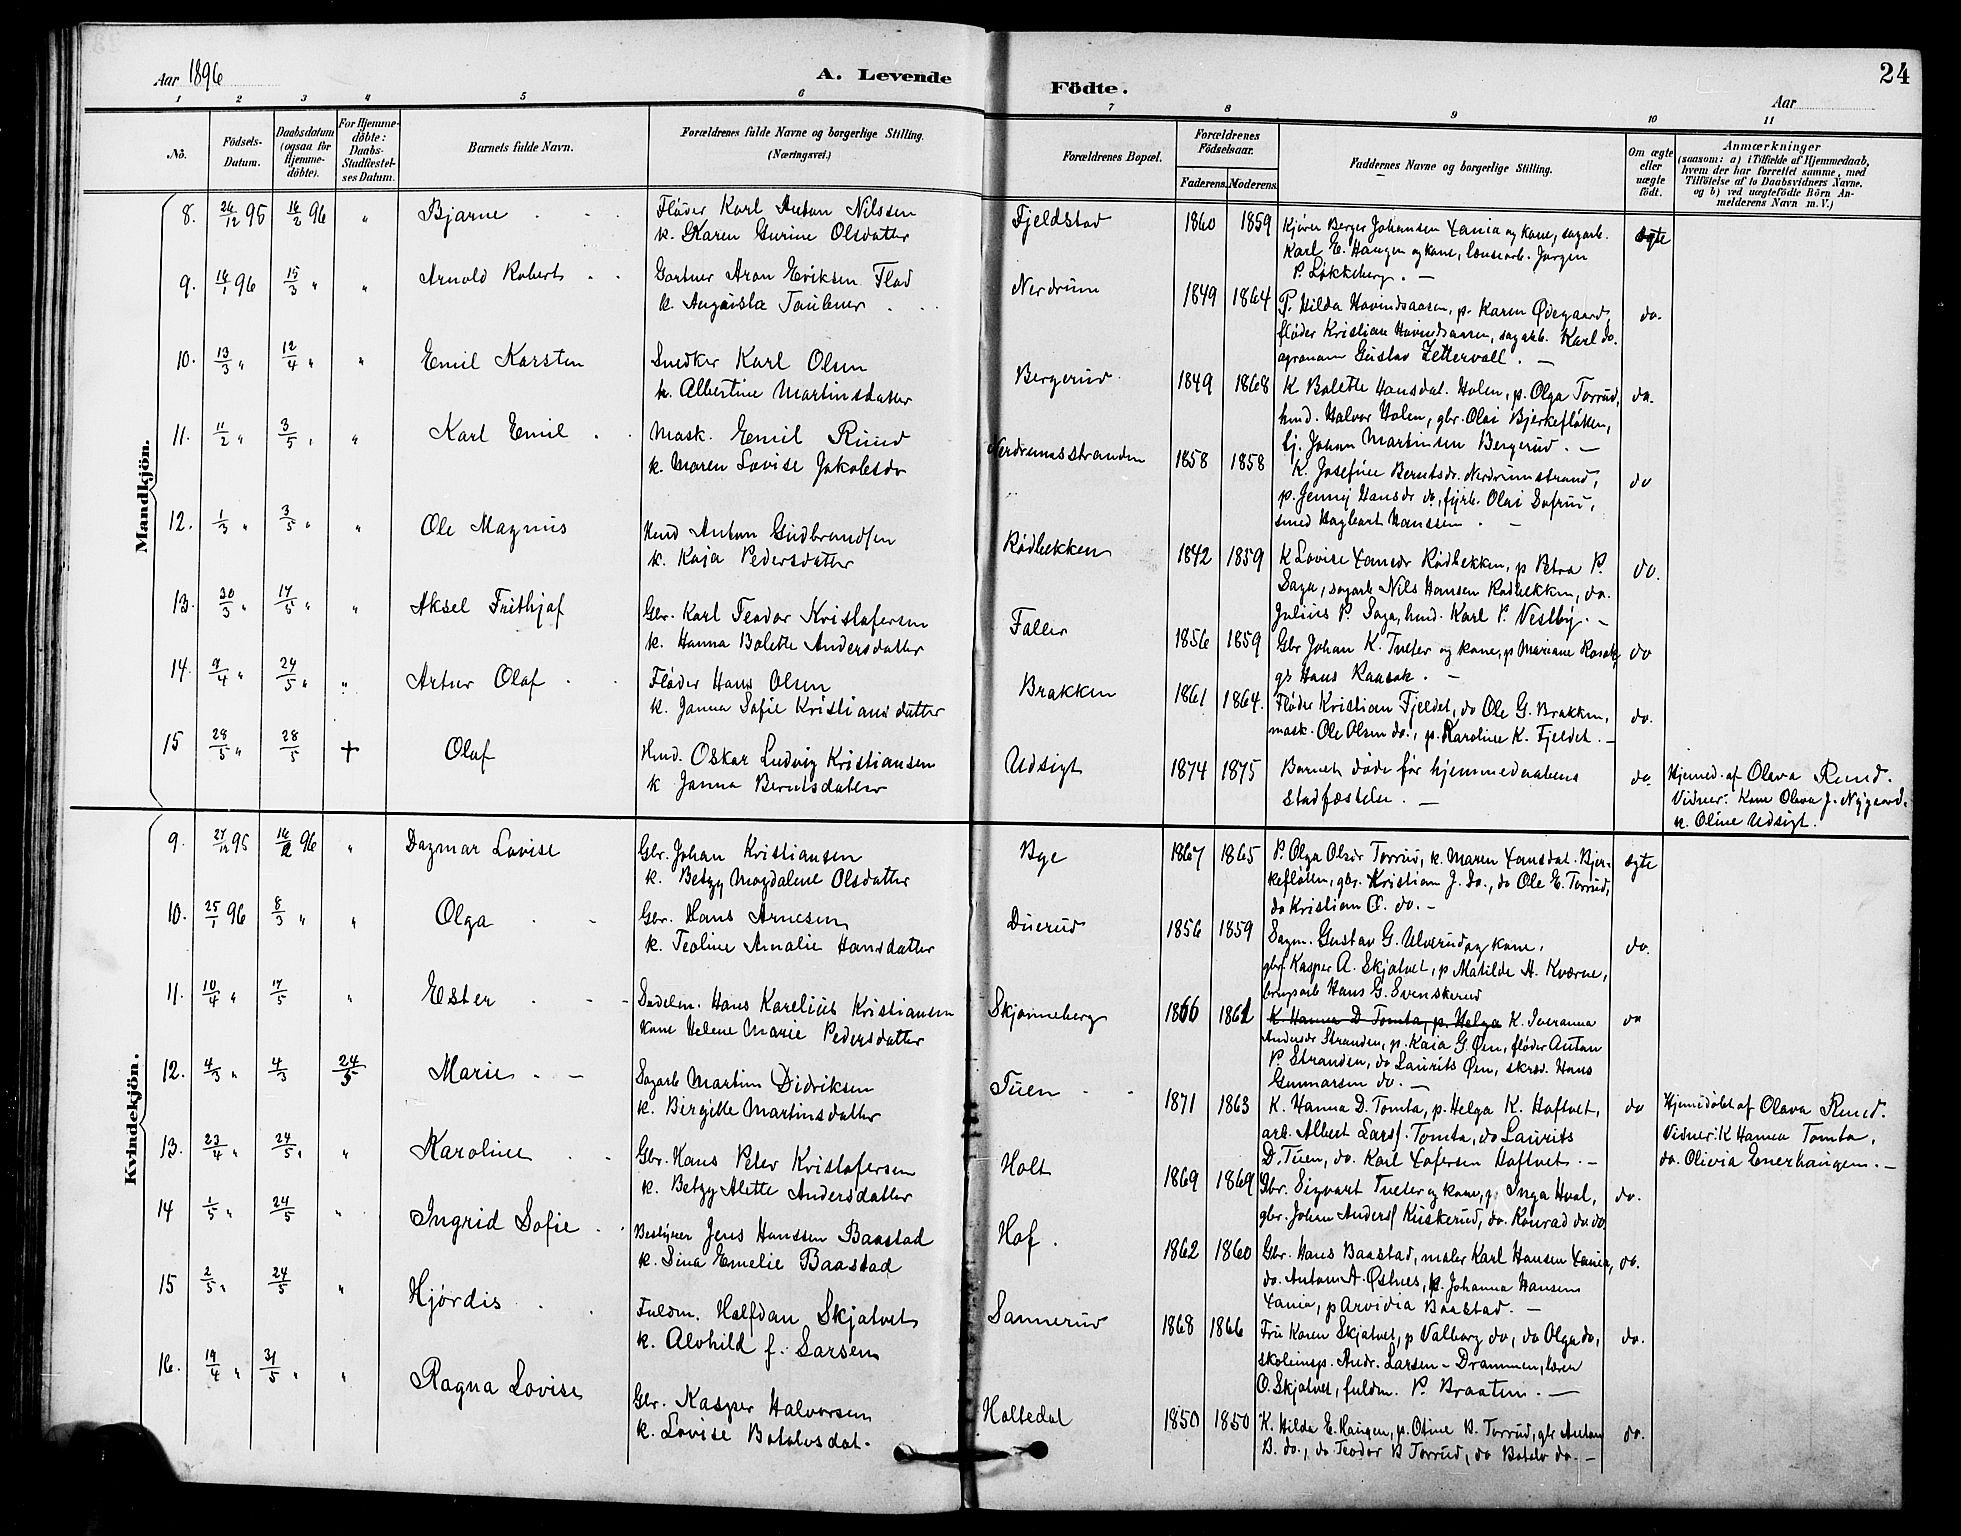 24
Aar 1896
A. Levende
Födte.
Aar
1 2 3 4 5 6 7 8 9 10 11
No.
Födsels-Datum.
Daabsdatum (ogsaa for Hjemmedöbte).
For Hjemmedöbte: Daabs-Stadfæstelses Datum.
Barnets fulde Navn.
Forældrenes fulde Navne og borgerlige Stilling. (Næringsvei.)
Forældrenes Bopæl.
Forældrenes Födselsaar.
Faderens. Moderens.
Faddernes Navne og borgerlige Stilling.
Om ægte eller uægte födt.
Anmærkninger
(saasom: a) i Tilfælde af Hjemmedaab, hvem der har forrettet samme, med Tilföielse af to Daabsvidners Navne, og b) ved uægtefödte Börn Anmelderens Navn m. V.)
Mandkjön.
8. 26/12 95 16/2 96 " Bjarne Fløder Karl Anton Nilssen Fjeldstad 1860 1859 Kjører Berger Johansen Lania og kone, sagarb. ægte
k. Karen Gurine Olsdatter Karl E. Haugen og kone, lensearb. Jørgen
P. Løkkeberg. —
9. 16/1 96 15/3 " " Arnold Robert Gartner Aron Eriksen Flod Nerdrum 1849 1864 P. Hilda Hovindsaasen, p. Karen Ødegaard, do.
k. Augusta Taubner fløder Kristian Hovindsaasen, sagarb. Karl do.
agronom Gustav Zettervall. —
10. 13/3 " 12/4 " " Emil Karsten Snedker Karl Olsen Bergerud 1849 1868 K Bolette Hansdat. Holen, p. Olga Torrud, do.
k. Albertine Martinsdatter hmd. Halvor Holen, gbr. Olai Bjerkefløten,
tj. Johan Martinsen Bergerud. —
11. 11/2 " 3/5 " " Karl Emil Mask. Emil Rund Nerdrumsstranden 1858 1858 K. Josefine Berntsdr. Nerdrumstrand, do
k. Maren Lovise Jakobsdr p. Jenny Hansdr do, fyrb. Olai Dofrud,
smed Hagbart Hanssen. —
12. 1/3 " 3/5 " " Ole Magnus Hmd Anton Gudbrandsen Rødbekken 1842 1859 K Lovise Larsdr Rødbekken, p Petra P. do.
k. Kaja Pedersdatter Saga, sagarb Nils Hansen Rødbekken, do.
Julius P. Saga, hmd. Karl P. Vestby. —
13. 30/3 " 17/5 " " Aksel Frithjof Gbr. Karl Teodor Kristofersen Faller 1856 1859 Gbr Johan K. Tveter og kone, p Mariane Raaok, do
k. Hanna Bolette Andersdatter gs Hans Raaok. —
14. 9/4 " 24/5 " " Artur Olaf Fløder Hans Olsen Brakken 1861 1864. Fløder Kristian Fjeldet, do Ole G. Brakken, do.
k. Janna Sofie Kristiansdatter mask. Ole Olsen do., p. Karoline K. Fjeldet. —
15 28/5 " 28/5 + Olaf Hmd. Oskar Ludvig Kristiansen Udsigt 1874 1875 Barnet døde før hjemmedaabens do. Hjemmed. af Olava Rund.
k Janna Berntsdatter stadfæstelse. — Vidner: Kone Olava J. Nygaard.
k. Oline Udsigt.
Kvindekjön.
9. 27/12 95 16/2 96 " Dagmar Lovise Gbr. Johan Kristiansen Bye 1867 1865 P. Olga Olsdr Torrud, k. Maren Larsdat. Bjer- ægte
k. Betzy Magdalene Olsdatter kefløten, gbr. Kristian J. do., do Ole E. Torrud,
do Kristian O. do. —
10. 25/1 96 8/3 " " Olga Gbr. Hans Arnesen Duerud 1856 1859 Sagm. Gustav G. Ulverud og kone, do.
k. Teoline Amalie Hansdatter gbr Kasper A. Skjatvet, p Matilde H. Kværne,
brugsarb Hans G. Svenskerud
11. 10/4 " 17/5 " Ester Sadelm. Hans Karelius Kristiansen Skjønneberg 1866 1862 K. Hanna D Tomta, p. Helga K. Iveranna do
kone Helene Marie Pedersdatter Andersdr Stranden, p. Kaia G. Øen, fløder Anton
P Stranden, do Laurits Øen, skræd. Hans
Gunnarsen do. —
12. 4/3 " 4/3 24/5 Marie Sagarb Martin Didriksen Tuen 1871 1863 K. Hanna D. Tomta, p. Helga K. Haftvet, do Hjemmedøbt af Olava Rund.
k. Birgitte Martinsdatter arb. Albert Larss. Tomta, do Laurits Vidner: K Hanna Tomta,
D. Tuen, do. Karl Tofersen Haftvet. — do. Olivia Enerhaugen. —
13. 23/4 " 24/5 " " Karoline Gbr. Hans Peter Kristofersen Holt 1869 1869 Gbr. Sigvart Tveter og kone, p. Inga Hval, do.
k. Betzy Alette Andersdatter gbr. Johan Anderss Kuskerud, do. Konrad do do
14 1/5 " 24/5 " Ingrid Sofie Bestyrer Jens Hanssen Baastad Hof. 1862 1860 Gbr. Hans Baastad, maler Karl Hansen Lania, do.
k. Sina Emelie Baastad do. Anton A. Østnes, k. Johanna Hansen
Lania, p Arvidia Baastad. —
15 2/5 " 24/5 " Hjørdis Fuldm. Halfdan Skjatvet Sannerud 1868 1866 Fru Karen Skjatvet, p Valborg do, do Olga do, do.
k. Alvhild f. Larsen skoleinsp. Andr. Larsen – Drammen, lærer
O. Skjatvet, fuldm. P. Braaten. —
16. 19/4 " 31/5 " " Ragna Lovise Gbr. Kasper Halvorsen Holtedal 1850 1850 K. Hilda E. Haugen, p. Otine B. Torrud, gbr Anton do.
k. Lovise Botolvsdat. B. do., do Teodor B Torrud, do Botolv do. —